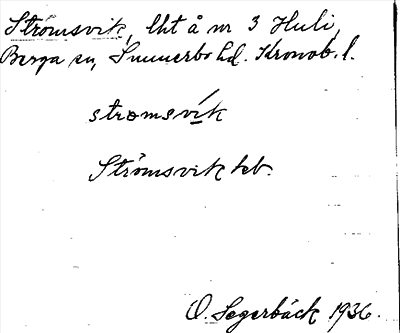 Strömsvik, lht å nr 3 Huli,
Berga sn, Sunnerbo hd. Kronob. l.
stromsvík
Strömsvik kb.
O. Segerbäck 1936.